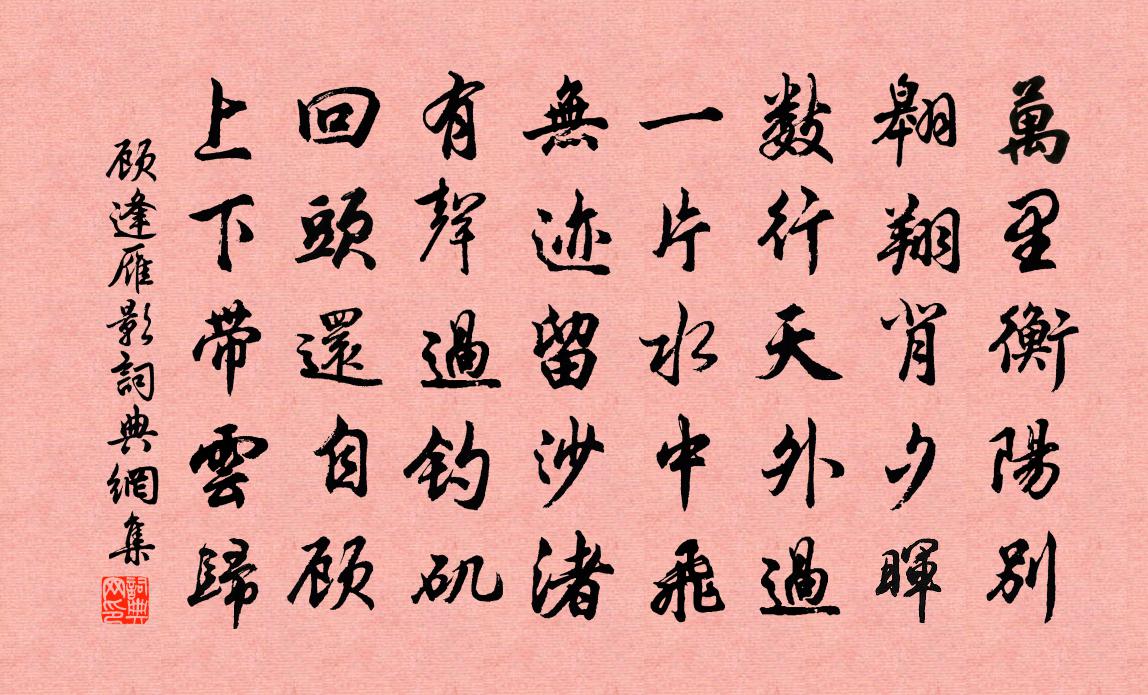 萬里衡陽別
翱翔背夕暉
数行天外過
一片水中飛
無迹留沙渚
有聲過釣磯
回頭還自顾
上下帶雲歸
顾逢雁影詞典網集
詞典
网印